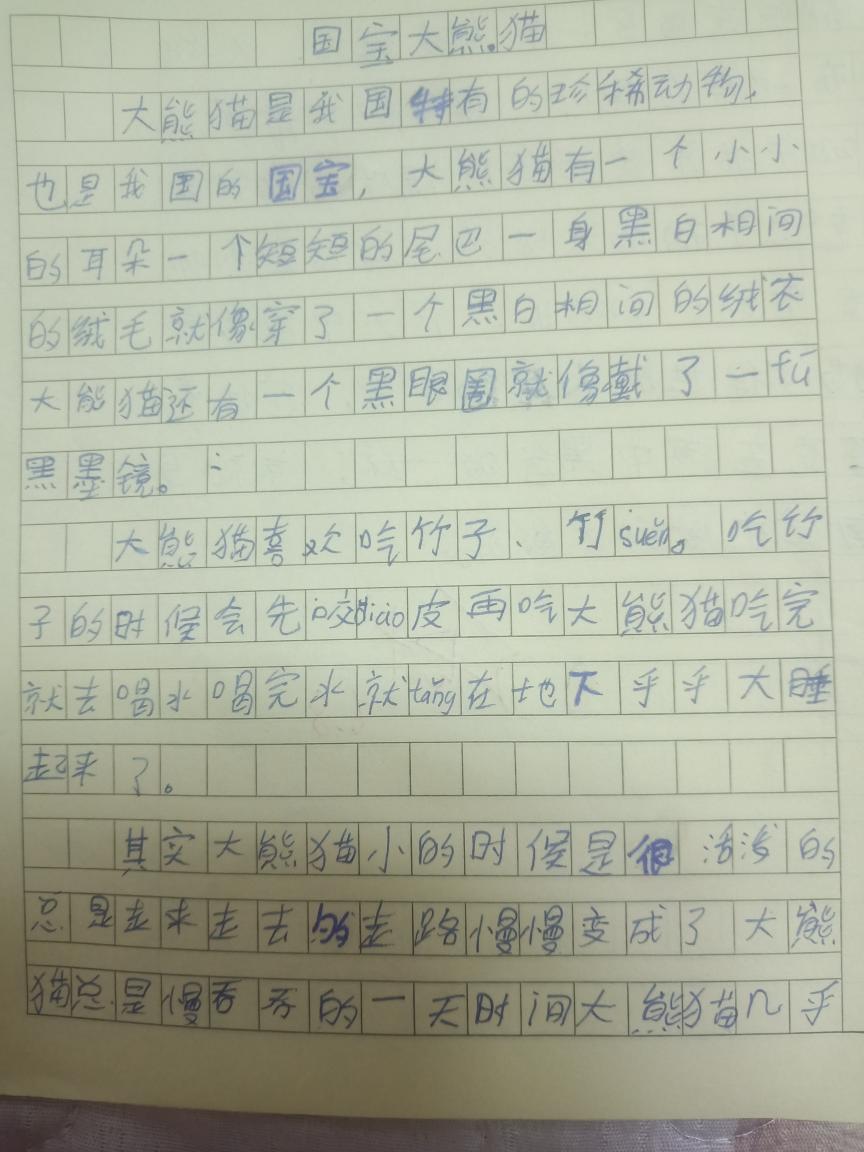 国宝大熊猫
大熊猫是我国特有的珍稀动物,
也是我国的国宝,大熊猫有一个小小
的耳朵一个短短的尾巴一身黑白相间
的绒毛就像穿了一个黑白相间的绒衣
大能猫还有一个黑眼圈就像戴了一fù
黑墨镜。
大熊猫喜欢吃竹子、竹suěn。吃竹
子的时候会先咬diao皮再吃大熊猫吃完
就去喝水喝完水就tǎng在地下乎乎大睡
起来了。
其实大熊猫小的时候是很活泼的
总是走来走去去的走路慢慢变成了大熊
猫总是慢吞吞的一天时间大熊猫几乎